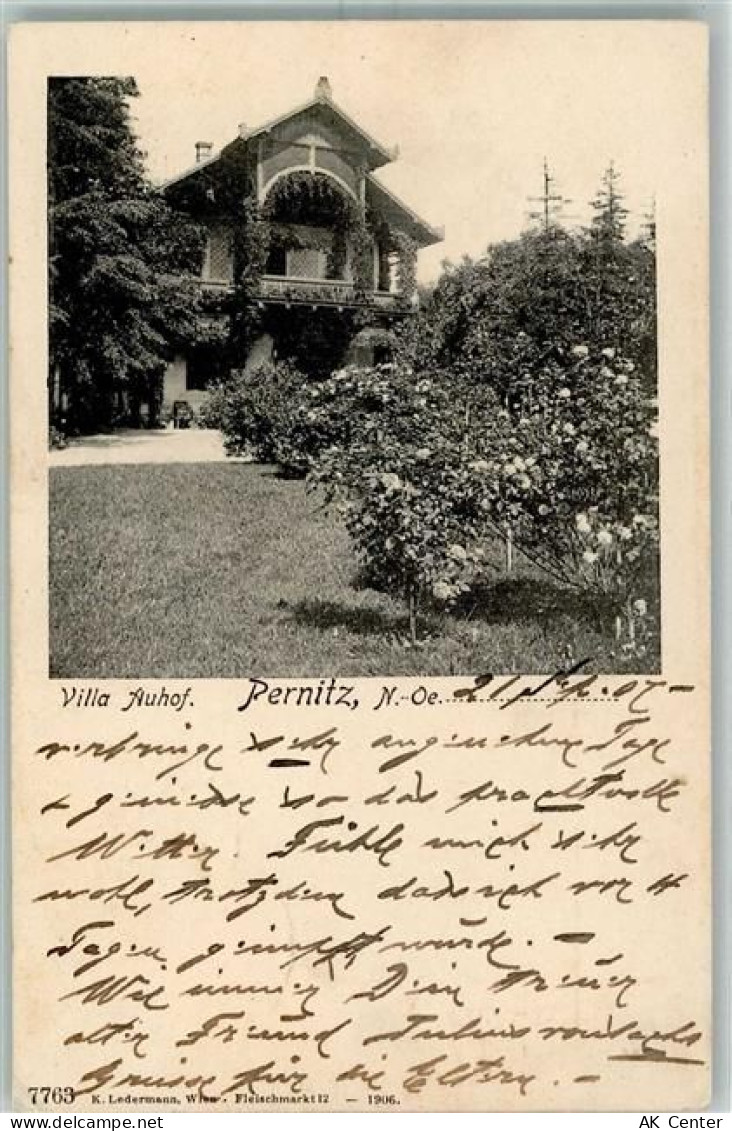 Villa Auhof. Pernitz, N.-Oe. 21
verbringe sehr angenehme Tage
& geniesse so das prachtvolle
Wetter. Fühle mich sehr
wohl, trotzdem dass ich vor 14
Tagen geimpft wurde. –
Wie immer Dein treuer
alter Freund Julius
Grüsse für die Eltern. –
7763 K. Ledermann, Wien. Fleischmarkt 12 – 1906.
AK Center